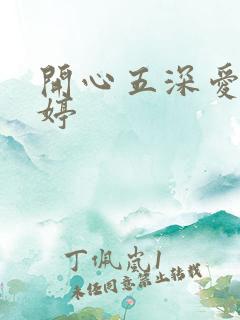 開心五深愛
婷
丁佩嵐1
未经同意禁止转载